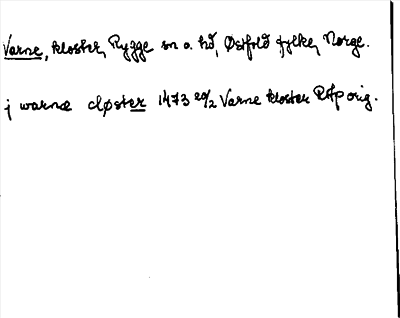 Varne, kloster, Rygge sn o. hd, Østfold fylke, Norge.
j warnæ cløster 1473 20/2 Varne kloster RAp orig.